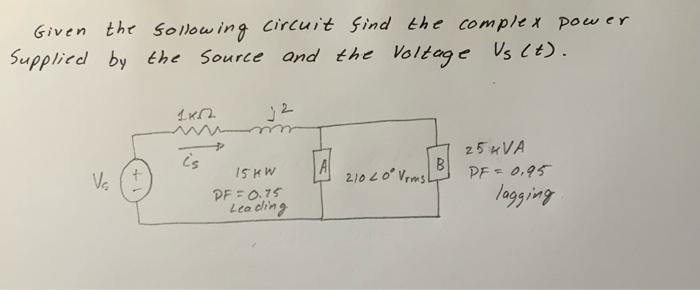 Given the following circuit find the complex power
Supplied by the Source and the Voltage Vs (t).
1KΩ
j2
is
Vs
+
-
15KW
PF = 0.75
Leading
A
210∠0° Vrms
B
25KVA
PF = 0,95
lagging